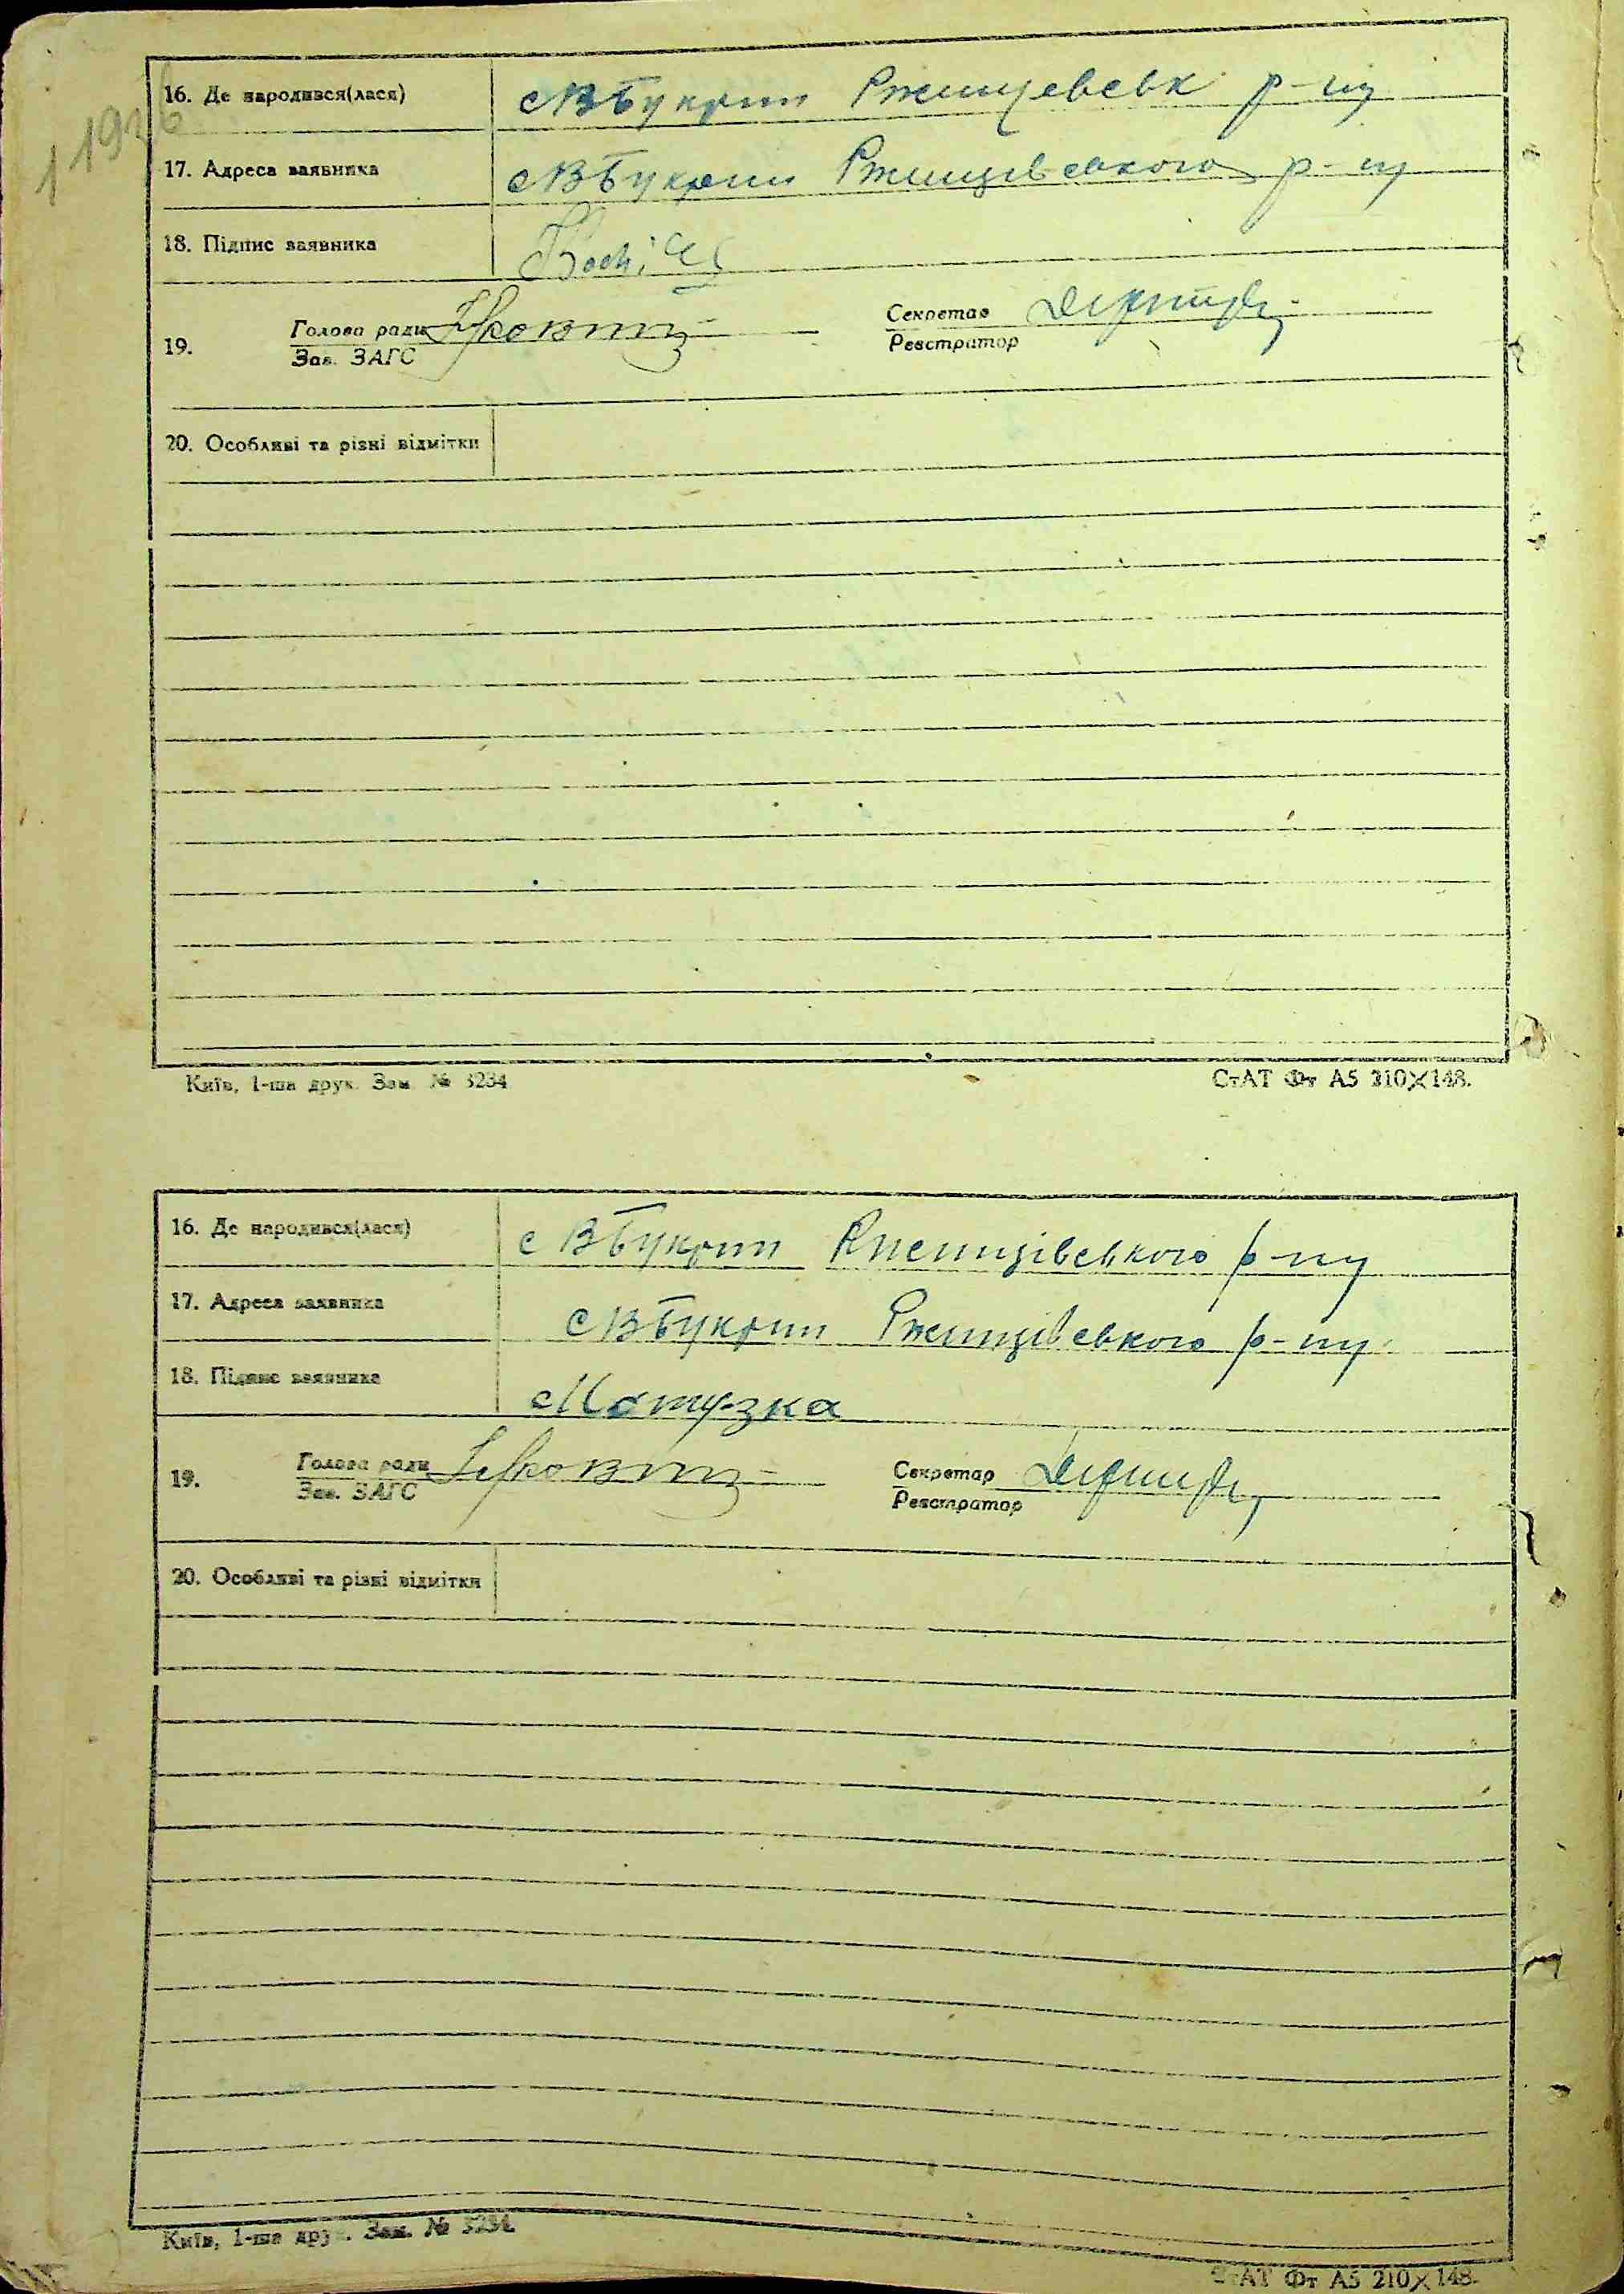 16. Де народився(лася) с В Букрин Ржищевськ р-ну
17. Адреса заявника с В Букрин Ржищівського р-ну
18. Підпис заявника
19. Голова ради Секретар
Зав. ЗАГС Реєстратор
20. Особливі та різні відмітки
Київ, 1-ша друк. Зам. № 3234 СтАТ Фт А5 210×148.
16. Де народився(лася) с В Букрин Ржищівського р-ну
17. Адреса заявника с В Букрин Ржищівського р-ну
18. Підпис заявника Мотузка
19. Голова ради Секретар
Зав. ЗАГС Реєстратор
20. Особливі та різні відмітки
Київ, 1-ша друк. Зам. № 3234. СтАТ Фт А5 210×148.